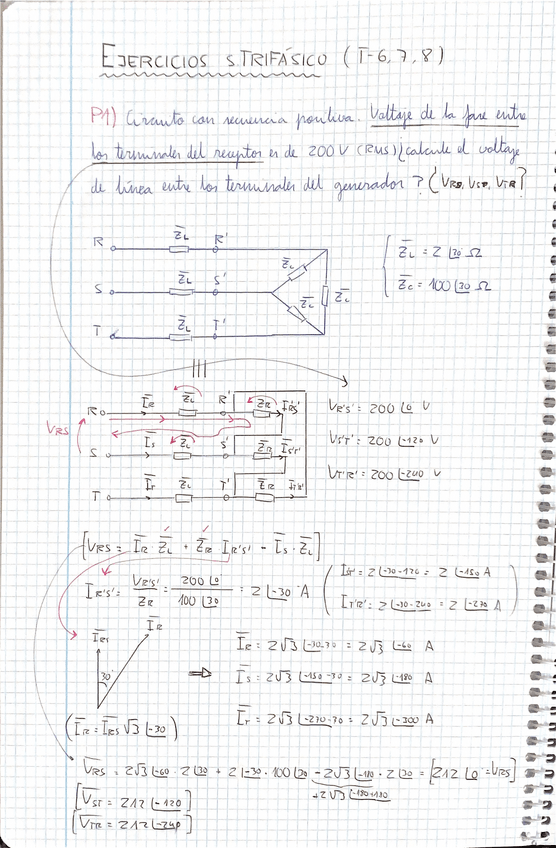 EJERCICIOS S.TRIFÁSICO (T-6,7,8)
P1) Circuito con secuencia positiva. Voltaje de la fase entre
los terminales del receptor es de 200 V (RMS) ¿calcule el voltaje
de línea entre los terminales del generador? (VRS, VST, VTR)
R Z̅L R'
S Z̅L S' Z̅L Z̅L Z̅L
T Z̅L T'
Z̅L = 2 ∠30 Ω
Z̅c = 100 ∠30 Ω
R I̅R Z̅L R' Z̅R I̅R'S'
VRS
S I̅S Z̅L S' Z̅R I̅S'T'
T I̅T Z̅L T' Z̅R I̅T'R'
VR'S' = 200 ∠0 V
VS'T' = 200 ∠-120 V
VT'R' = 200 ∠-240 V
[VRS = I̅R Z̅L + Z̅R IR'S' - I̅S · Z̅L]
IR'S' = VR'S' / ZR = 200 ∠0 / 100 ∠30 = 2 ∠-30 A
= 2 ∠-30-120 = 2 ∠-150 A
IT'R' = 2 ∠-30-240 = 2 ∠-270 A
I̅R
30
(I̅R = I̅RS √3 ∠-30)
⇒
I̅R = 2√3 ∠-30-30 = 2√3 ∠-60 A
I̅S = 2√3 ∠-150-30 = 2√3 ∠-180 A
I̅T = 2√3 ∠-270-30 = 2√3 ∠-300 A
V̅RS = 2√3 ∠-60 · 2 ∠30 + 2 ∠-30 · 100 ∠30 - 2√3 ∠-180 · 2 ∠30 = [212 ∠0 = VRS]
+2√3 ∠-180+180
[V̅ST = 212 ∠-120]
[V̅TR = 212 ∠-240]